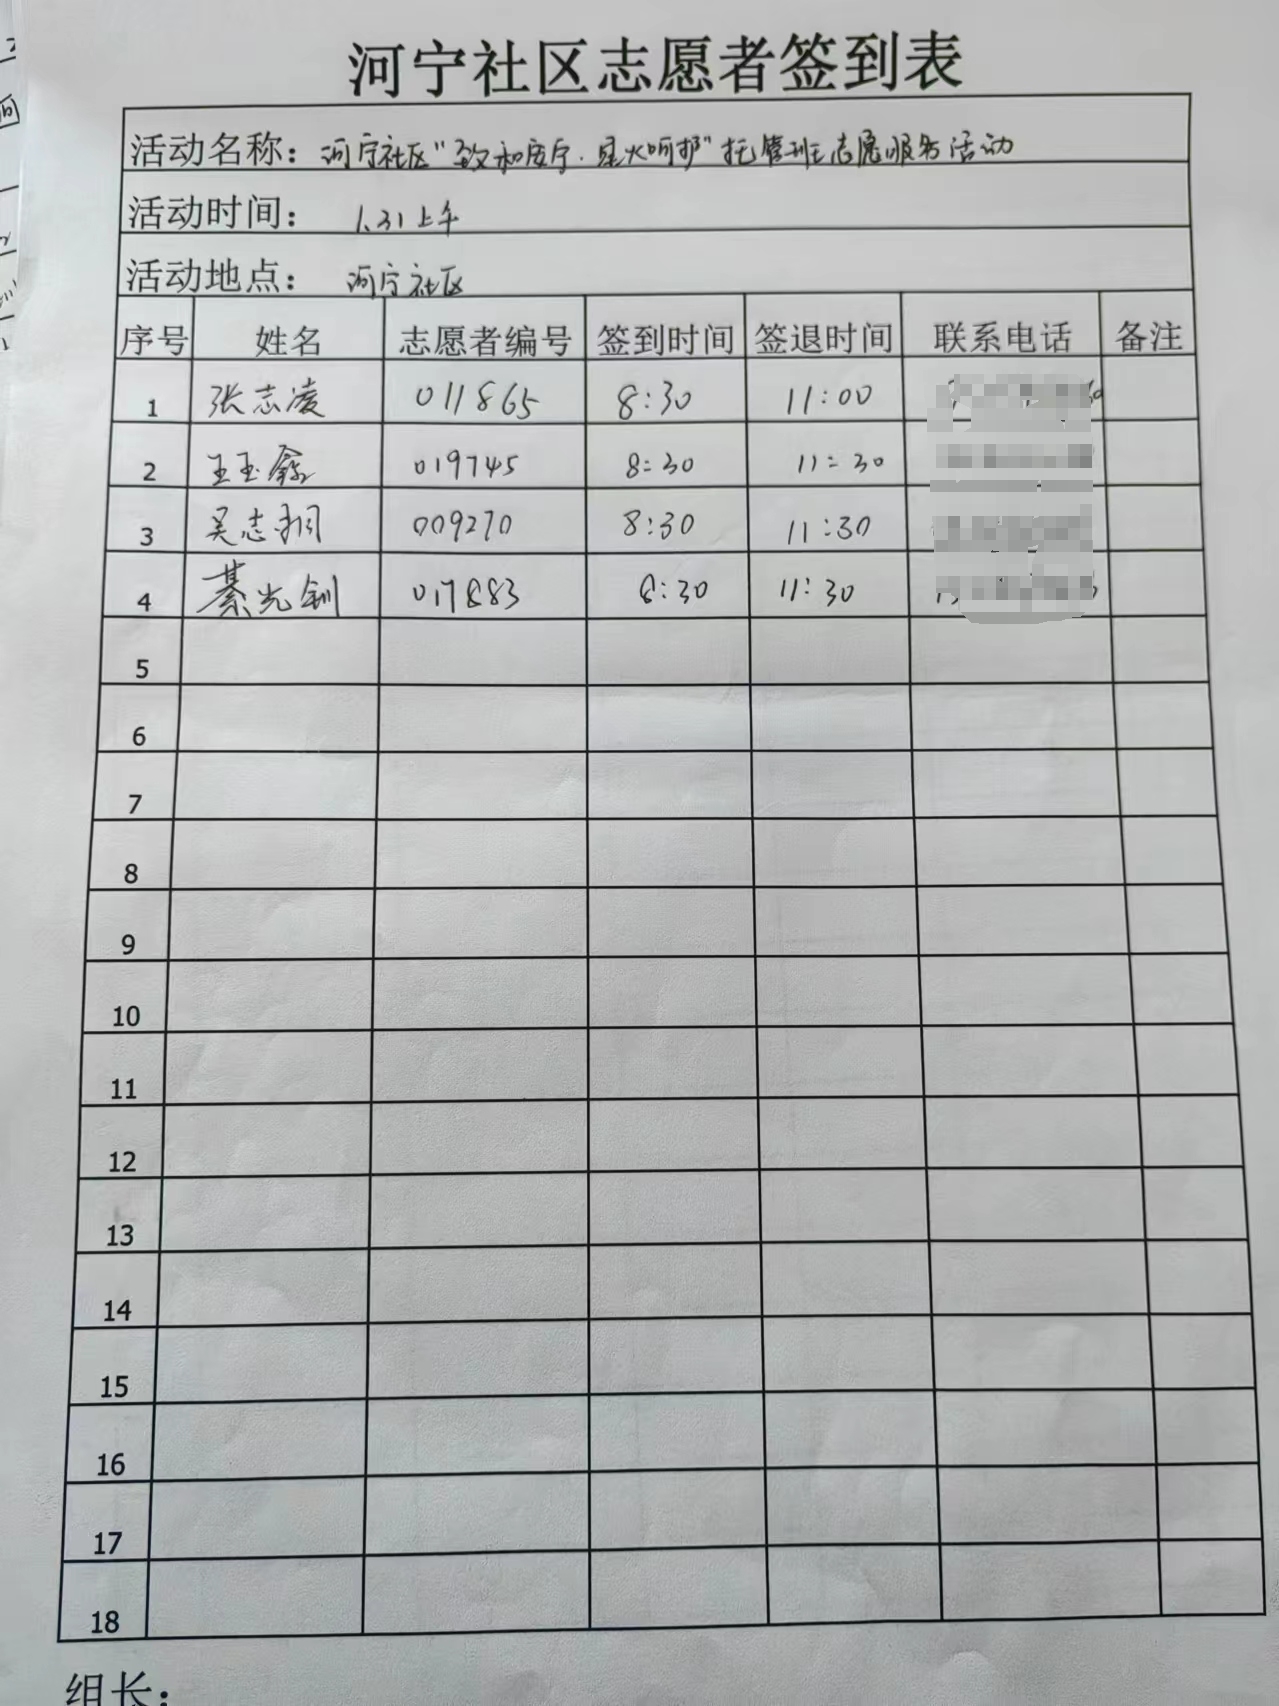 河宁社区志愿者签到表
活动名称：河宁社区“致和安宁·星火呵护”托管班志愿服务活动
活动时间：1.31上午
活动地点：河宁社区
序号 姓名 志愿者编号 签到时间 签退时间 联系电话 备注
1 张志凌 011865 8:30 11:00
2 王玉鑫 019745 8:30 11:30
3 吴志 009270 8:30 11:30
4 綦光钏 017883 8:30 11:30
5
6
7
8
9
10
11
12
13
14
15
16
17
18
组长：